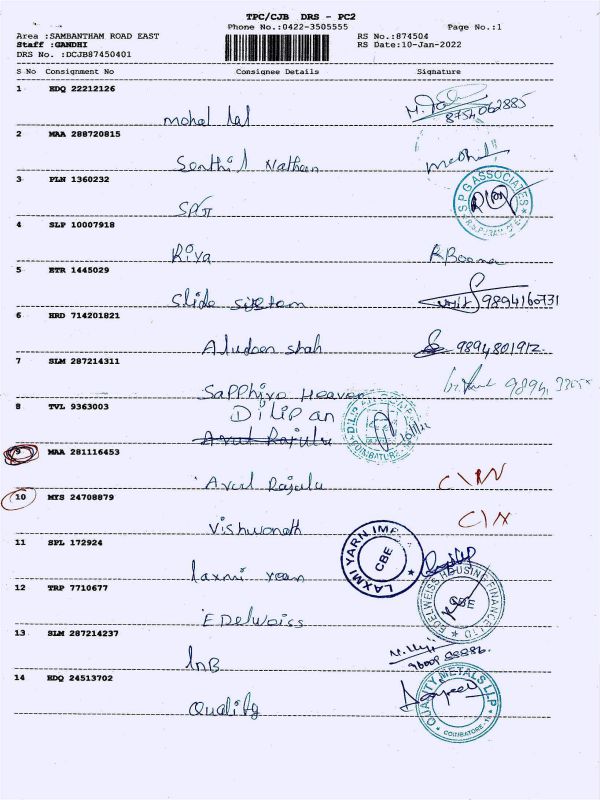 TPC/CJB DRS - PC2
Phone No.:0422-3505555 Page No.:1
Area :SAMBANTHAM ROAD EAST RS No.:874504
Staff :GANDHI RS Date:10-Jan-2022
DRS No. :DCJB87450401
S No Consignment No Consignee Details Signature
1 EDQ 22212126
Mohal Lal 8754062885
2 MAA 288720815
Senthil Nathan
3 PLN 1360232
SPG S P G ASSOCIATES
4 SLP 10007918
Riya R Boona
5 ETR 1445029
Slide System 9894160731
6 HRD 714201821
Aludeen Shah 9894801912
7 SLM 287214311
Sapphire Heaven 9894
8 TVL 9363003
DiLip an
Arul Rajulu COIMBATORE
9 MAA 281116453
Arul Rajulu C\N
10 MYS 24708879
Vishwanath C\N
11 SPL 172924
Laxmi yarn LAXMI YARN CBE
12 TRP 7710677
EDelweiss EDELWEISS HOUSING FINANCE LTD CBE
13 SLM 287214237
InB
14 EDQ 24513702
Quality QUALITY METALS LLP COIMBATORE